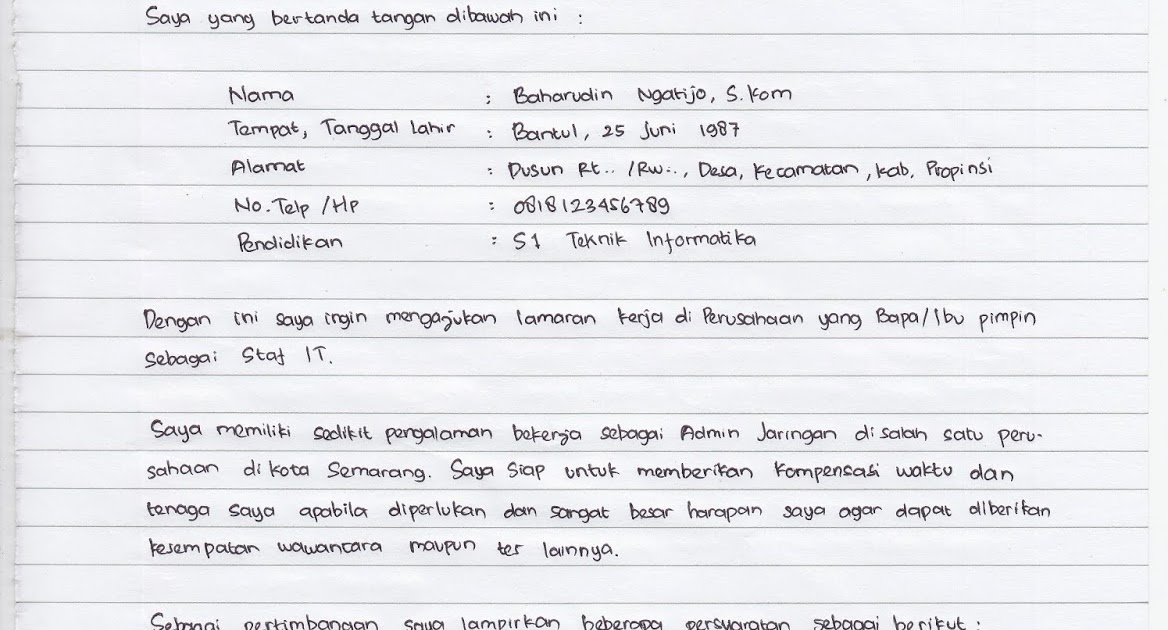 Saya yang bertanda tangan dibawah ini :
Nama : Baharudin Ngatijo, S.Kom
Tempat, Tanggal Lahir : Bantul, 25 Juni 1987
Alamat : Dusun Rt.. /Rw.., Desa, Kecamatan, Kab, Propinsi
No. Telp /Hp : 0818123456789
Pendidikan : S1 Teknik Informatika
Dengan ini saya ingin mengajukan lamaran kerja di Perusahaan yang Bapa/Ibu pimpin
sebagai Staf IT.
Saya memiliki sedikit pengalaman bekerja sebagai Admin Jaringan di salah satu peru-
sahaan di kota Semarang. Saya siap untuk memberikan kompensasi waktu dan
tenaga saya apabila diperlukan dan sangat besar harapan saya agar dapat diberikan
kesempatan wawancara maupun tes lainnya.
Sebagai pertimbangan saya lampirkan beberapa persyaratan sebagai berikut :